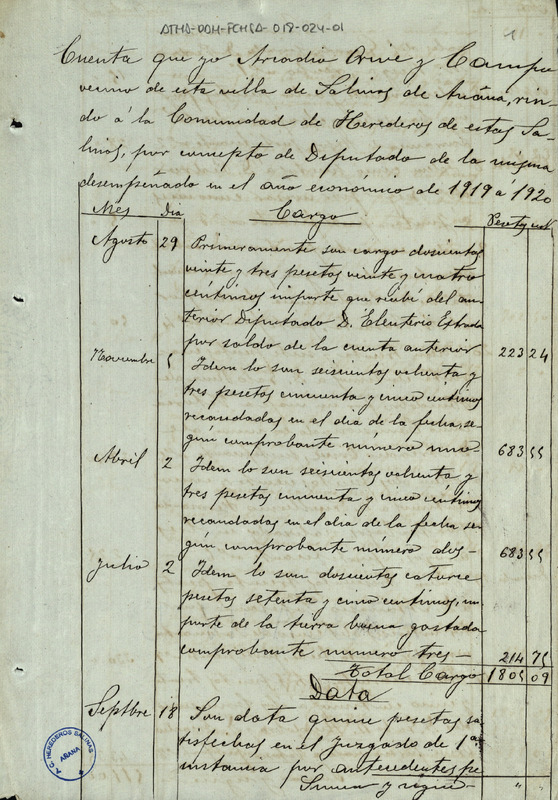 ATHA-DAH-FCHSA-018-024-01
Cuenta que yo Arcadio Orive y Campo
vecino de esta villa de Salinas de Añana, rin-
do á la Comunidad de Herederos de estas Sa-
linas, por concepto de Diputado de la misma
desempeñado en el año económico de 1919 á 1920
Mes Dia Cargo Pesetas cent
Agosto 29 Primeramente son cargo doscientas
veinte y tres pesetas veinte y cuatro
centimos importe que recibí del an-
terior Diputado D. Eleuterio Estrada
por saldo de la cuenta anterior 223 24
Noviembre 5 Idem lo son seiscientas ochenta y
tres pesetas cincuenta y cinco céntimos
recaudadas en el dia de la fecha, se-
gún comprobante número uno- 683 55
Abril 2 Idem lo son seiscientas ochenta y
tres pesetas cincuenta y cinco céntimos
recaudadas en el dia de la fecha se-
gún comprobante número dos- 683 55
Julio 2 Idem lo son doscientas catorce
pesetas setenta y cinco centimos, im-
porte de la tierra buena gastada
comprobante número tres- 214 75
Total Cargo 1805 09
Data
Septbre 18 Son data quince pesetas sa-
tisfechas en el Juzgado de 1ª
instancia por antecedentes pe-
Suman y sigue- " "
A.C. HEREDEROS SALINAS
AÑANA